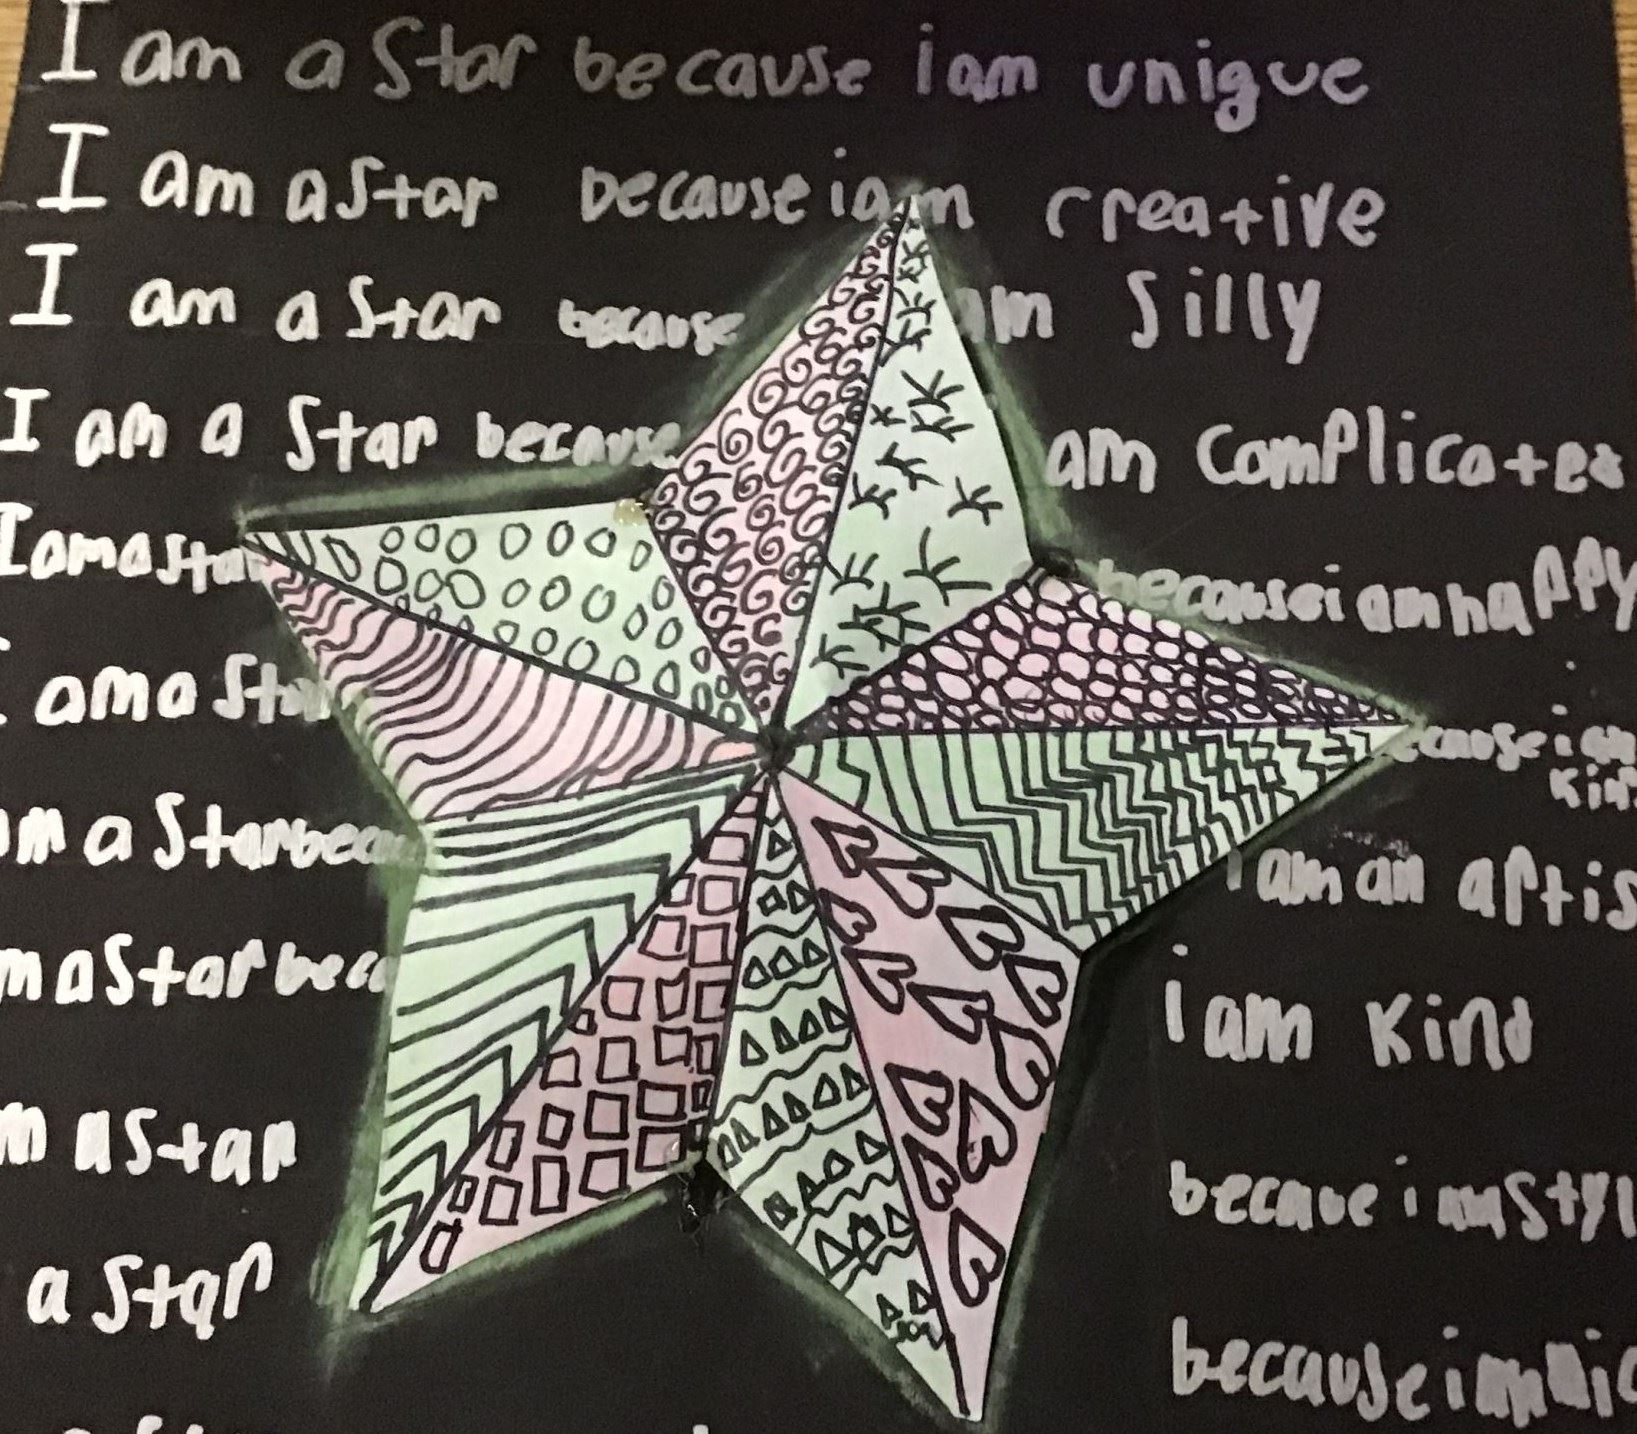 I am a Star because i am unique
I am a Star because i am creative
I am a Star because am Silly
I am a Star because am complicated
I am a star because i am happy
I am a Star because i am
kind
am a Star because I am an artis
m a Star bec i am kind
m a Star because i am styl
a Star because i am nic